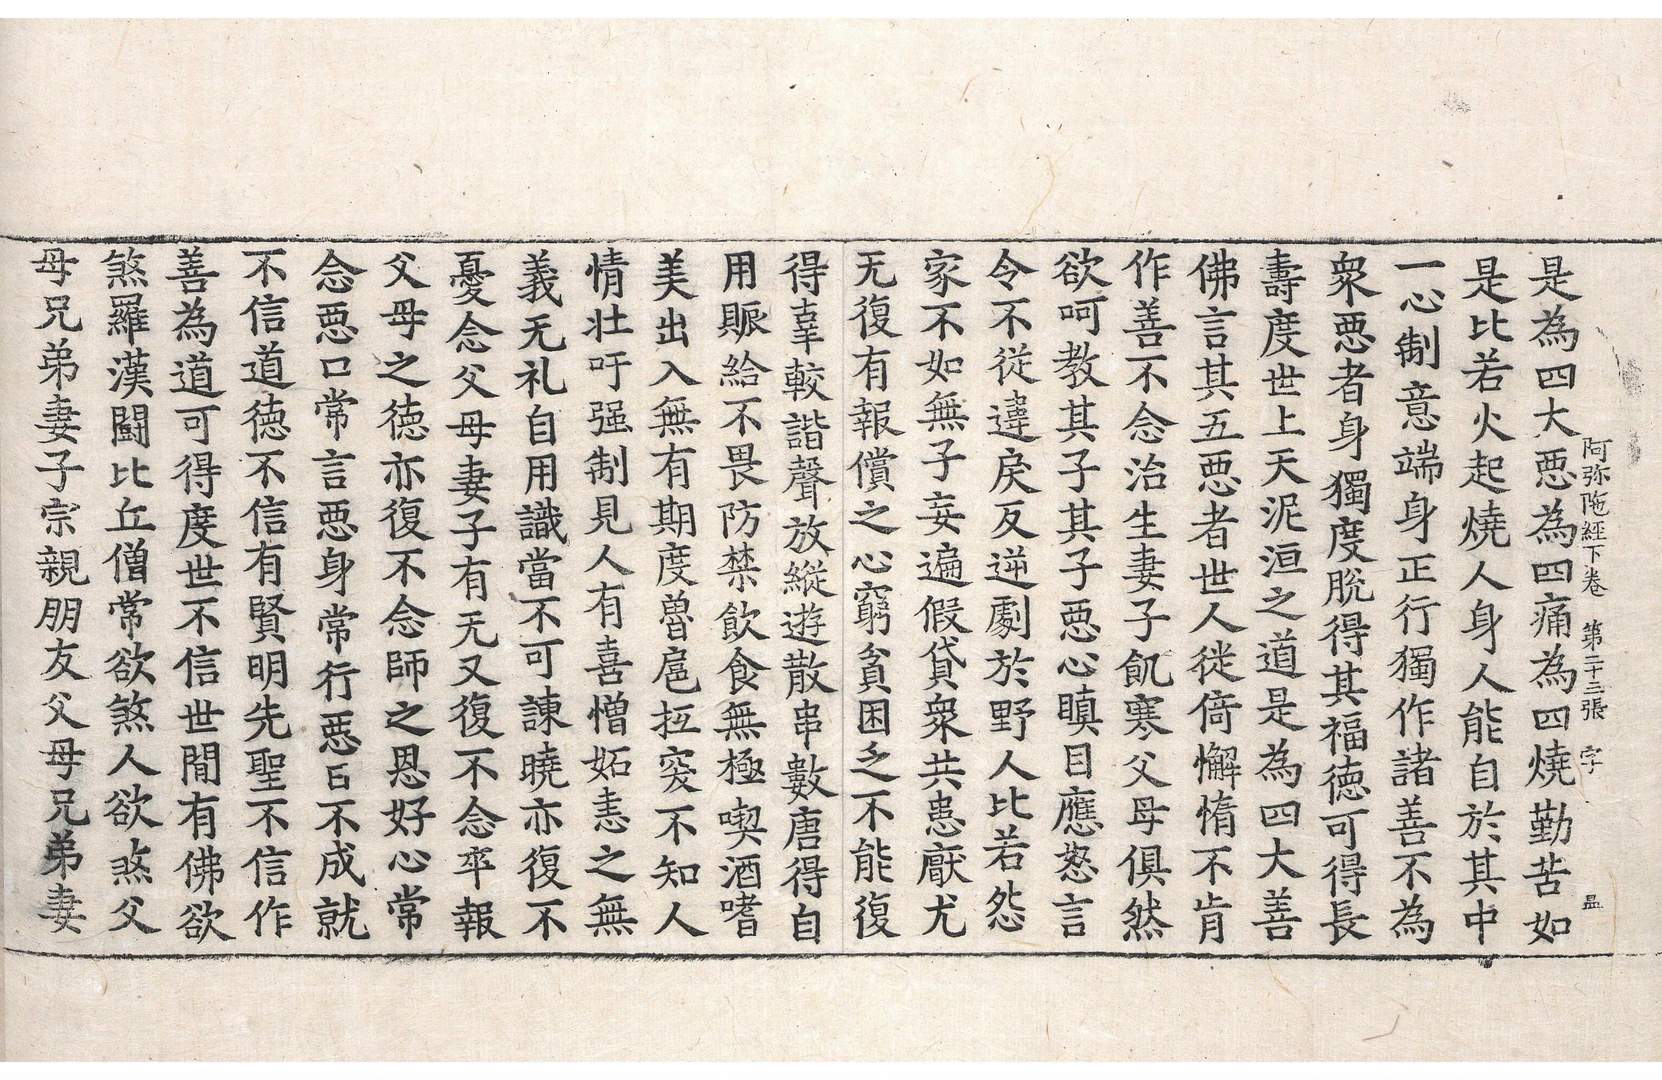 阿弥陁經下卷　第二十三張　字　昷
是為四大惡為四痛為四燒勤苦如
是比若火起燒人身人能自於其中
一心制意端身正行獨作諸善不為
衆惡者身獨度脫得其福德可得長
壽度世上天泥洹之道是為四大善
佛言其五惡者世人徙倚懈惰不肯
作善不念治生妻子飢寒父母俱然
欲呵教其子其子惡心瞋目應怒言
令不從違戾反逆劇於野人比若怨
家不如無子妄遍假貸衆共患厭尤
无復有報償之心窮貧困乏不能復
得辜較諧聲放縱遊散串數唐得自
用賑給不畏防禁飲食無極喫酒嗜
美出入無有期度魯扈抵突不知人
情壯吁强制見人有喜憎妬恚之無
義无礼自用識當不可諫曉亦復不
憂念父母妻子有无又復不念卒報
父母之德亦復不念師之恩好心常
念惡口常言惡身常行惡日不成就
不信道德不信有賢明先聖不信作
善為道可得度世不信世閒有佛欲
煞羅漢鬪比丘僧常欲煞人欲煞父
母兄弟妻子宗親朋友父母兄弟妻